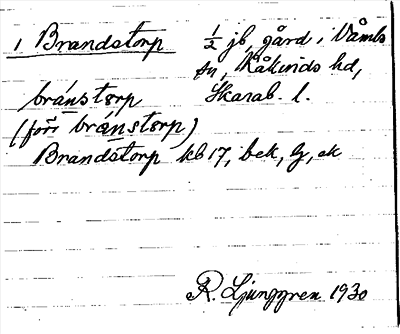 1 Brandstorp ½ jb gård i Våmbs
sn, Kåkinds hd,
bránstorp Skarab. l.
(förr bránstorp)
Brandstorp kb 17, bek, lg, ek
R. Ljunggren 1930